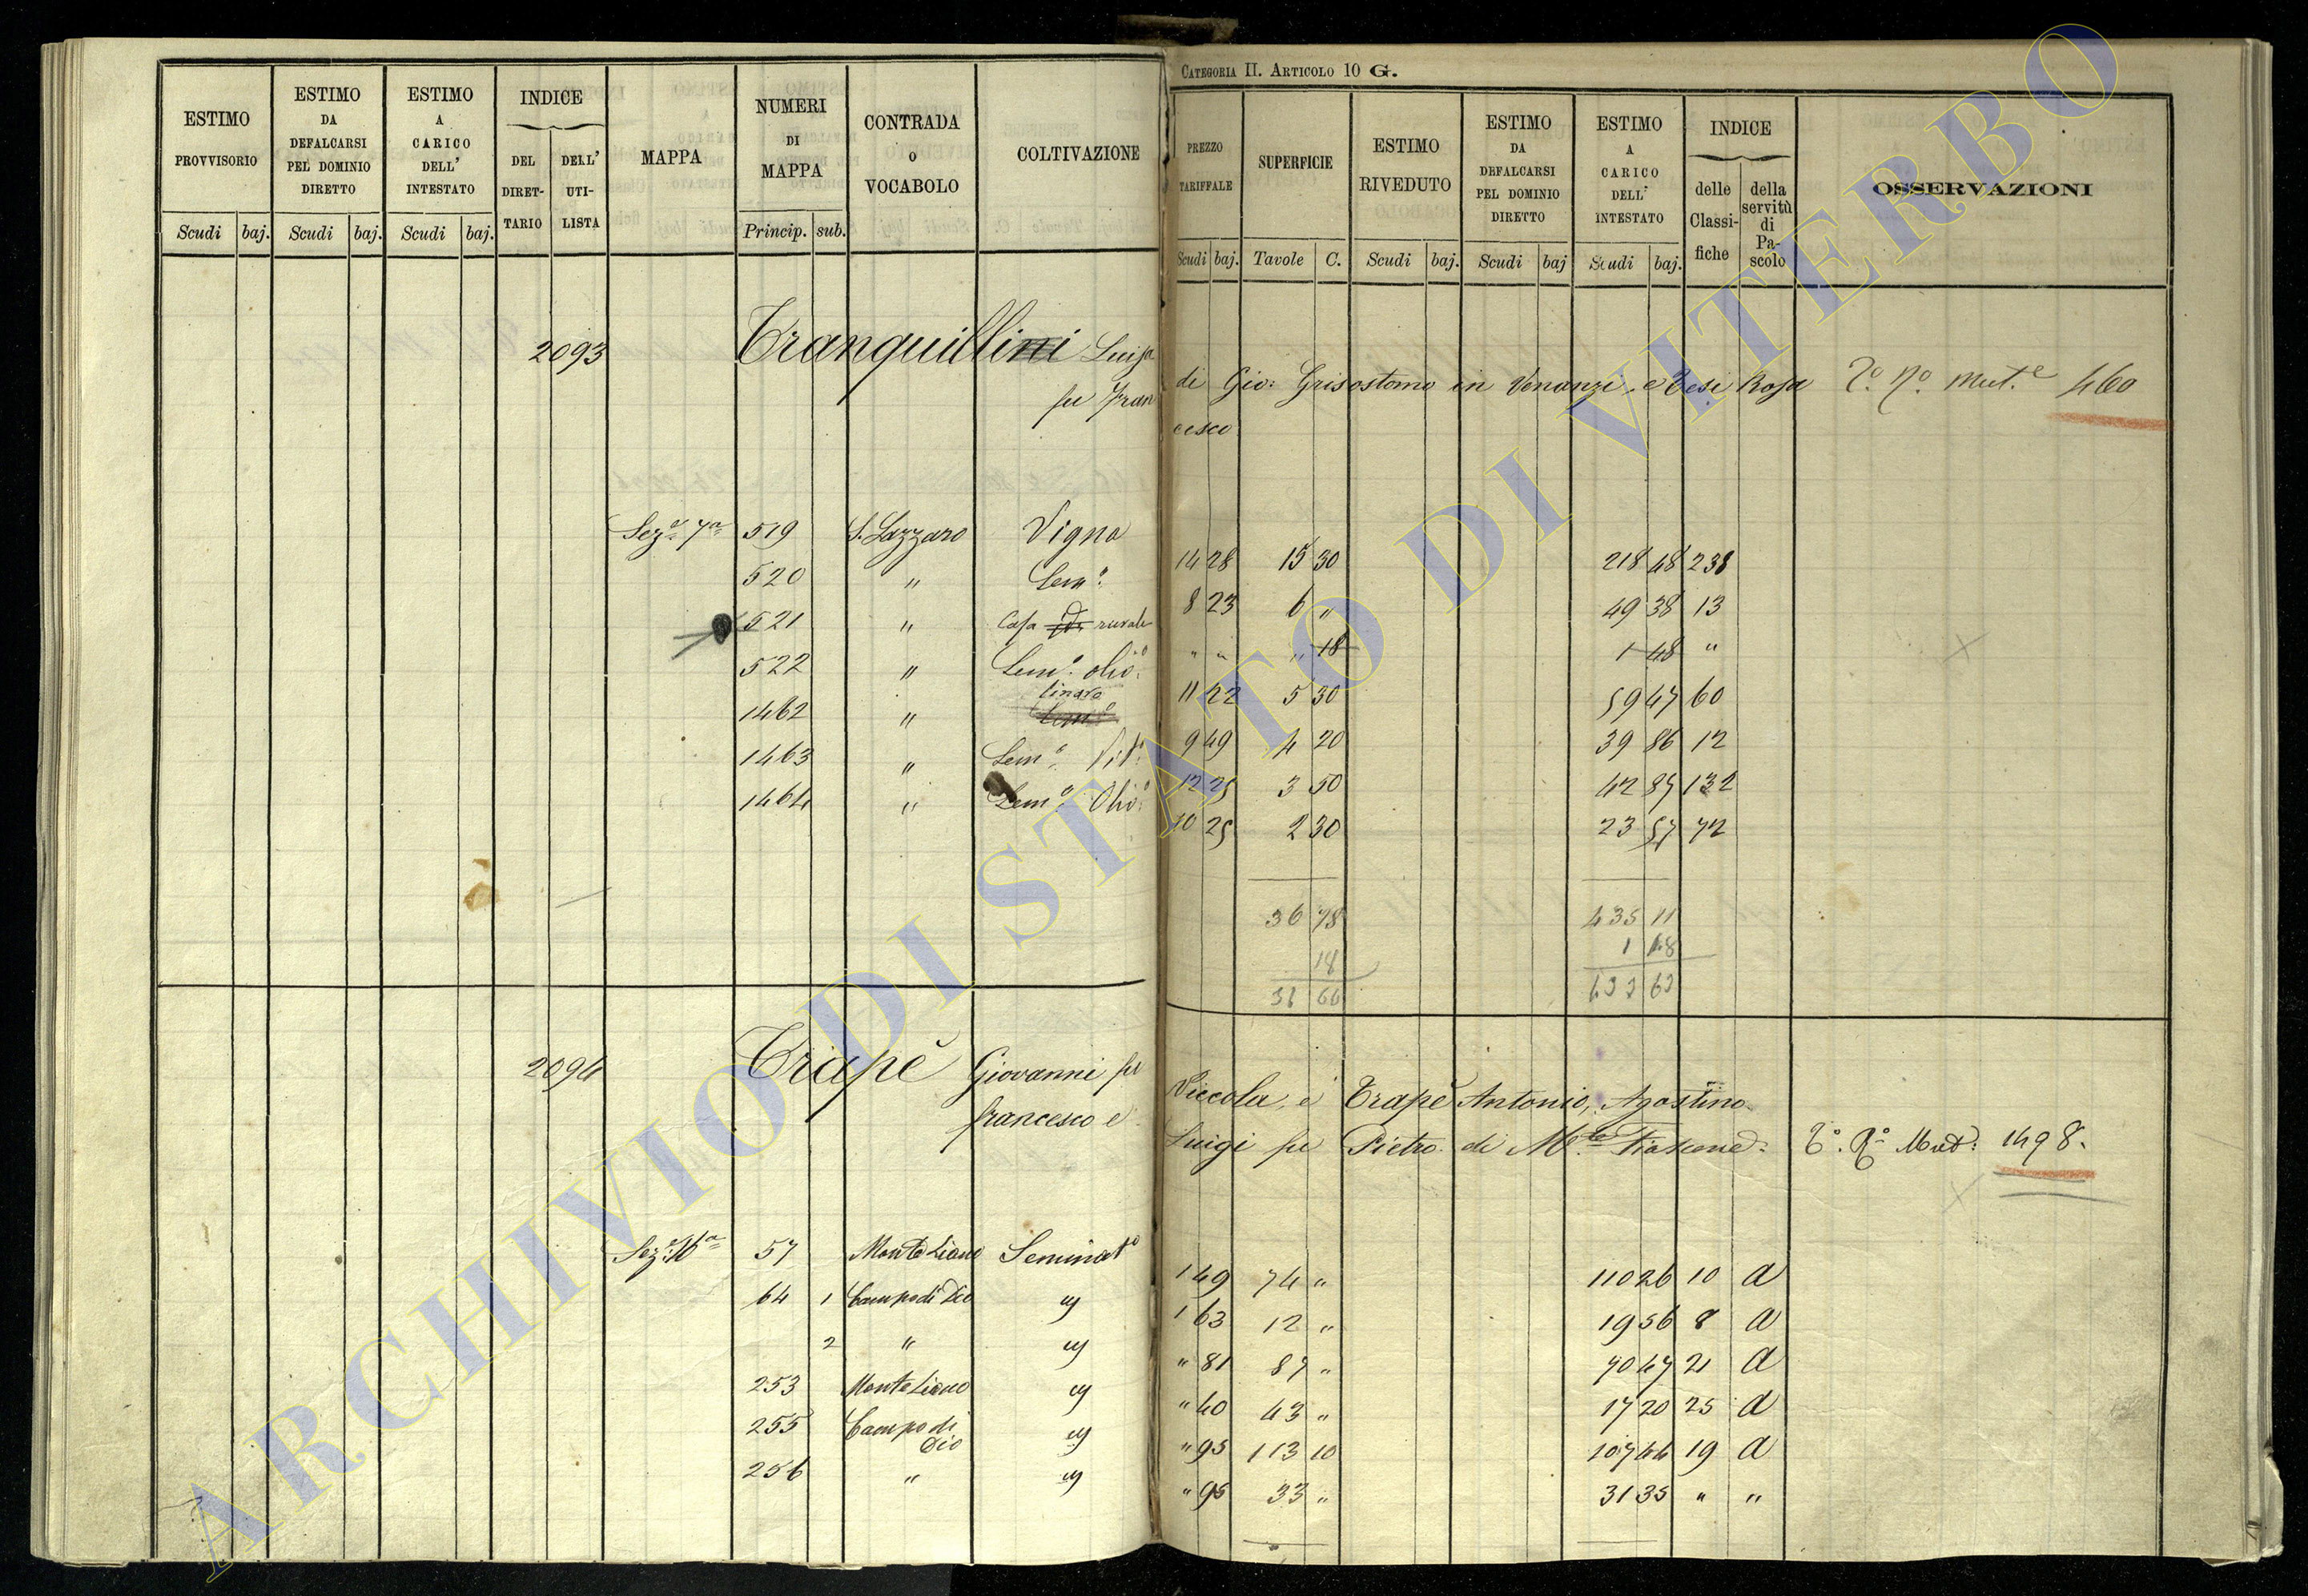 CATEGORIA II. ARTICOLO 10 G.
ESTIMO PROVVISORIO
ESTIMO DA DEFALCARSI PEL DOMINIO DIRETTO
ESTIMO A CARICO DELL' INTESTATO
INDICE
DEL DIRETTARIO
DELL' UTILISTA
MAPPA
NUMERI DI MAPPA
CONTRADA O VOCABOLO
COLTIVAZIONE
PREZZO TARIFFALE
SUPERFICIE
ESTIMO RIVEDUTO
ESTIMO DA DEFALCARSI PEL DOMINIO DIRETTO
ESTIMO A CARICO DELL' INTESTATO
INDICE
delle Classifiche
della servitù di Pascolo
OSSERVAZIONI
Scudi baj. Scudi baj. Scudi baj. Princip. sub. Scudi baj. Tavole C. Scudi baj. Scudi baj Scudi baj.
2093 Tranquillini Luisa di Gio: Grisostomo in Venanzi, e Tesi Rosa T.o N.o Mut.e 460
fu Francesco
Sez.e 7a 519 S. Lazzaro Vigna 14 28 15 30 218 48 238
520 " Sem.o 8 23 6 " 49 38 13
521 " Casa rurale " " " 18 1 48 "
522 " Sem.o olio.o 11 22 5 30 59 47 60
1462 " linara 9 49 4 20 39 86 12
1463 " Sem.o Vit.o 12 25 3 50 42 87 132
1464 " Sem.o Olio.o 10 25 2 30 23 57 72
36 78 435 11
18 1 48
36 60 433 63
2094 Trapè Giovanni fu Niccola, e Trapè Antonio, Agostino
francesco e Luigi fu Pietro di M.te Fiascone T.o N.o Mut. 1498.
Sez.e 16a 57 Monte Liano Seminat.o 1 49 74 " 110 26 10 a
64 1 Campo di Dio " 1 63 12 " 19 56 8 a
2 " " " 81 87 " 70 47 21 a
253 Monte Liano " " 40 43 " 17 20 25 a
255 Campo di Dio " " 95 113 10 107 44 19 a
256 " " " 95 33 " 31 35 " "
ARCHIVIO DI STATO DI VITERBO